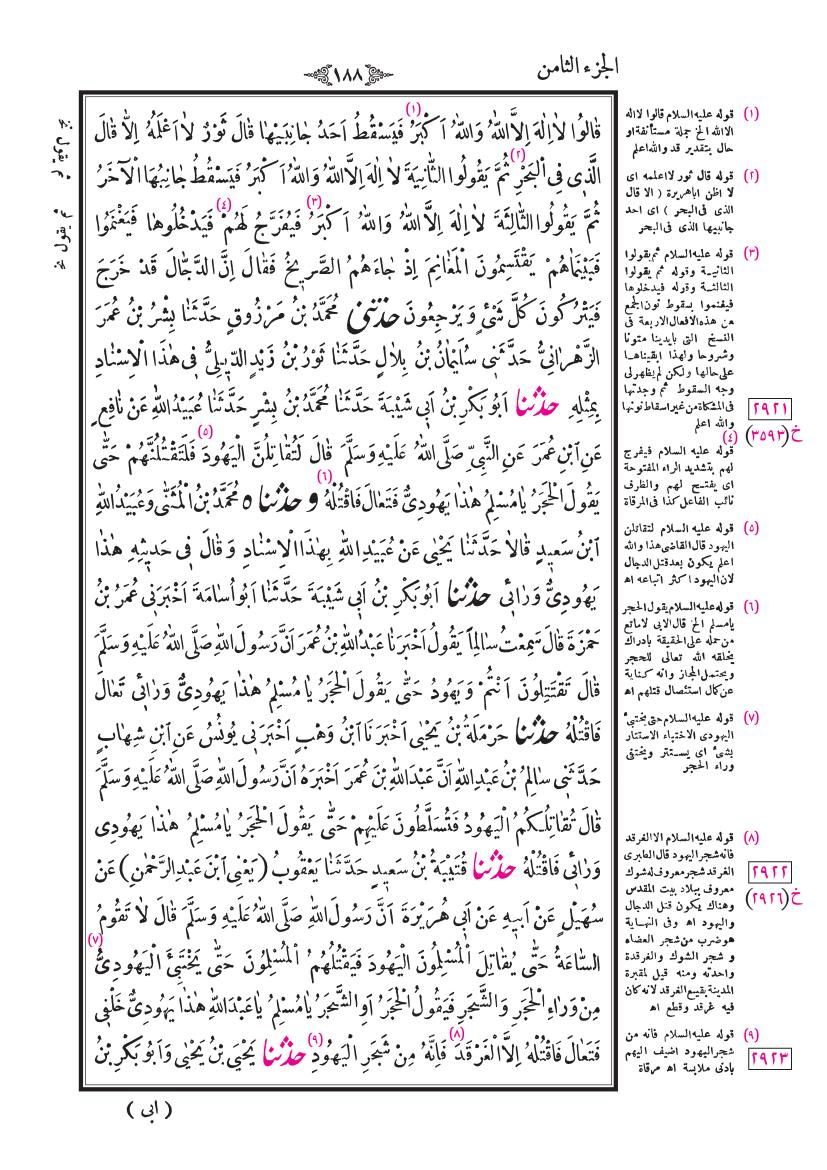 الجزء الثامن
١٨٨
قَالُوا لَا اِلٰهَ اِلَّا اللهُ وَاللهُ اَكْبَرُ (١) فَيَسْقُطُ اَحَدُ جَانِبَيْهَا قَالَ ثَوْرٌ لَا اَعْلَمُهُ اِلَّا قَالَ
الَّذِى فِى الْبَحْرِ (٢) ثُمَّ يَقُولُوا الثَّانِيَةَ لَا اِلٰهَ اِلَّا اللهُ وَاللهُ اَكْبَرُ فَيَسْقُطُ جَانِبُهَا الْآخَرُ
ثُمَّ يَقُولُوا الثَّالِثَةَ لَا اِلٰهَ اِلَّا اللهُ وَاللهُ اَكْبَرُ (٣) فَيُفَرَّجُ لَهُمْ (٤) فَيَدْخُلُوهَا فَيَغْنَمُوا
فَبَيْنَمَاهُمْ يَقْتَسِمُونَ الْمَغَانِمَ اِذْ جَاءَهُمُ الصَّرِيخُ فَقَالَ اِنَّ الدَّجَّالَ قَدْ خَرَجَ
فَيَتْرُكُونَ كُلَّ شَىْءٍ وَيَرْجِعُونَ حَدَّثَنِى مُحَمَّدُ بْنُ مَرْزُوقٍ حَدَّثَنَا بِشْرُ بْنُ عُمَرَ
الزَّهْرَانِىُّ حَدَّثَنِى سُلَيْمَانُ بْنُ بِلَالٍ حَدَّثَنَا ثَوْرُ بْنُ زَيْدٍ الدِّيلِىُّ فِى هٰذَا الْاِسْنَادِ
بِمِثْلِهِ حدثنا اَبُو بَكْرِ بْنُ اَبِى شَيْبَةَ حَدَّثَنَا مُحَمَّدُ بْنُ بِشْرٍ حَدَّثَنَا عُبَيْدُ اللهِ عَنْ نَافِعٍ
عَنِ ابْنِ عُمَرَ عَنِ النَّبِىِّ صَلَّى اللهُ عَلَيْهِ وَسَلَّمَ قَالَ لَتُقَاتِلُنَّ الْيَهُودَ (٥) فَلَتَقْتُلُنَّهُمْ حَتَّى
يَقُولَ الْحَجَرُ يَا مُسْلِمُ هٰذَا يَهُودِىٌّ فَتَعَالَ فَاقْتُلْهُ (٦) و حدثناه مُحَمَّدُ بْنُ الْمُثَنّٰى وَعُبَيْدُ اللهِ
ابْنُ سَعِيدٍ قَالَا حَدَّثَنَا يَحْيٰى عَنْ عُبَيْدِ اللهِ بِهٰذَا الْاِسْنَادِ وَقَالَ فِى حَدِيثِهِ هٰذَا
يَهُودِىٌّ وَرَائِى حدثنا اَبُو بَكْرِ بْنُ اَبِى شَيْبَةَ حَدَّثَنَا اَبُو اُسَامَةَ اَخْبَرَنِى عُمَرُ بْنُ
حَمْزَةَ قَالَ سَمِعْتُ سَالِماً يَقُولُ اَخْبَرَنَا عَبْدُ اللهِ بْنُ عُمَرَ اَنَّ رَسُولَ اللهِ صَلَّى اللهُ عَلَيْهِ وَسَلَّمَ
قَالَ تَقْتَتِلُونَ اَنْتُمْ وَيَهُودُ حَتَّى يَقُولَ الْحَجَرُ يَا مُسْلِمُ هٰذَا يَهُودِىٌّ وَرَائِى تَعَالَ
فَاقْتُلْهُ حدثنا حَرْمَلَةُ بْنُ يَحْيٰى اَخْبَرَنَا ابْنُ وَهْبٍ اَخْبَرَنِى يُونُسُ عَنِ ابْنِ شِهَابٍ
حَدَّثَنِى سَالِمُ بْنُ عَبْدِ اللهِ اَنَّ عَبْدَ اللهِ بْنَ عُمَرَ اَخْبَرَهُ اَنَّ رَسُولَ اللهِ صَلَّى اللهُ عَلَيْهِ وَسَلَّمَ
قَالَ تُقَاتِلُكُمُ الْيَهُودُ فَتُسَلَّطُونَ عَلَيْهِمْ حَتَّى يَقُولَ الْحَجَرُ يَا مُسْلِمُ هٰذَا يَهُودِى
وَرَائِى فَاقْتُلْهُ حدثنا قُتَيْبَةُ بْنُ سَعِيدٍ حَدَّثَنَا يَعْقُوبُ (يَعْنِى ابْنَ عَبْدِ الرَّحْمٰنِ) عَنْ
سُهَيْلٍ عَنْ اَبِيهِ عَنْ اَبِى هُرَيْرَةَ اَنَّ رَسُولَ اللهِ صَلَّى اللهُ عَلَيْهِ وَسَلَّمَ قَالَ لَا تَقُومُ
السَّاعَةُ حَتَّى يُقَاتِلَ الْمُسْلِمُونَ الْيَهُودَ فَيَقْتُلُهُمُ الْمُسْلِمُونَ حَتَّى يَخْتَبِئَ الْيَهُودِىُّ (٧)
مِنْ وَرَاءِ الْحَجَرِ وَالشَّجَرِ فَيَقُولُ الْحَجَرُ اَوِ الشَّجَرُ يَا مُسْلِمُ يَا عَبْدَ اللهِ هٰذَا يَهُودِىٌّ خَلْفِى
فَتَعَالَ فَاقْتُلْهُ اِلَّا الْغَرْقَدَ (٨) فَاِنَّهُ مِنْ شَجَرِ الْيَهُودِ (٩) حدثنا يَحْيَى بْنُ يَحْيٰى وَاَبُو بَكْرِ بْنُ
( ابى )
(١) قوله عليه السلام قالوا لااله
الا الله الخ جملة مستأنفة او
حال بتقدير قد والله اعلم
(٢) قوله قال ثور لا اعلمه اى
لا اظن اباهريرة ( الا قال
الذى فى البحر ) اى احد
جانبيها الذى فى البحر
(٣) قوله عليه السلام ثم يقولوا
الثانية وقوله ثم يقولوا
الثالثة وقوله فيدخلوها
فيغنموا بسقوط نون الجمع
عن هذه الافعال الاربعة فى
النسخ التى بايدينا متونا
وشروحا ولهذا ابقيناها
على حالها ولكن لم يظهر لى
وجه السقوط ثم وجدتها
فى المشكاة من غير اسقاط نونها
والله اعلم
٢٩٢١
خ (٣٥٩٣)
(٤) قوله عليه السلام فيفرج
لهم بتشديد الراء المفتوحة
اى يفتح لهم والظرف
نائب الفاعل كذا فى المرقاة
(٥) قوله عليه السلام لتقاتلن
اليهود قال القاضى هذا والله
اعلم يكون بعد قتل الدجال
لان اليهود اكثر اتباعه اه
(٦) قوله عليه السلام يقول الحجر
يامسلم الخ قال الابى لا مانع
من حمله على الحقيقة بادراك
يخلقه الله تعالى للحجر
ويحتمل المجاز وانه كناية
عن كمال استئصال قتلهم اه
(٧) قوله عليه السلام حتى يختبئ
اليهودى الاختباء الاستتار
بشئ اى يستتر ويختفى
وراء الحجر
(٨) قوله عليه السلام الا الغرقد
فانه شجر اليهود قال الطبرى
الغرقد شجر معروف له شوك
معروف ببلاد بيت المقدس
وهناك يكون قتل الدجال
واليهود اه وفى النهاية
هو ضرب من شجر العضاه
و شجر الشوك والغرقدة
واحدته ومنه قيل لمقبرة
المدينة بقيع الغرقد لانه كان
فيه غرقد وقطع اه
٢٩٢٢
خ (٢٩٢٦)
(٩) قوله عليه السلام فانه من
شجر اليهود اضيف اليهم
بادنى ملابسة اه مرقاة
٢٩٢٣
ثم يقول نخ